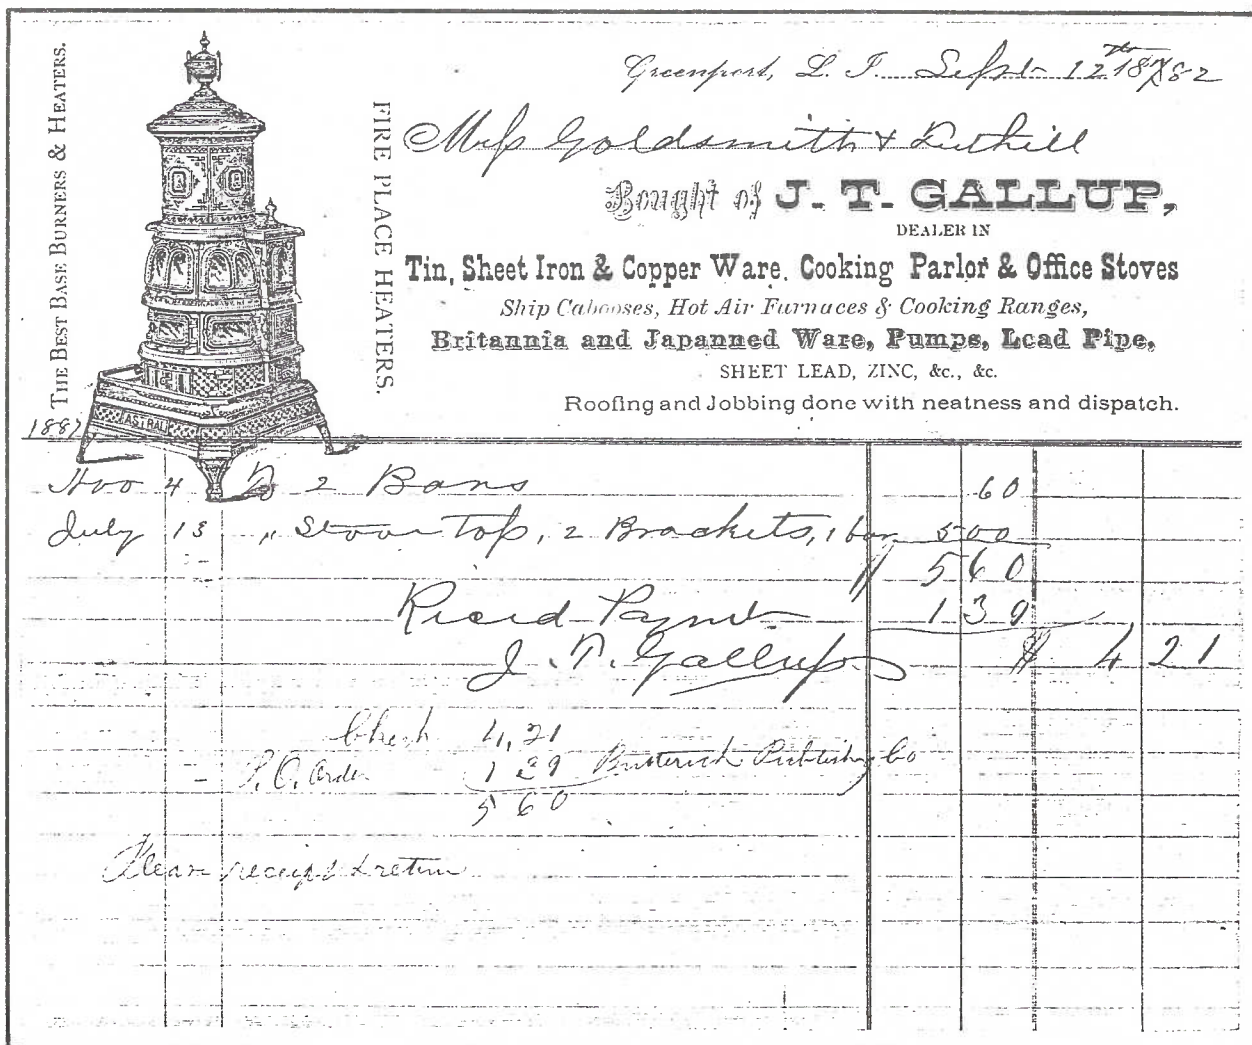 THE BEST BASE BURNERS & HEATERS.
FIRE PLACE HEATERS.
ASTRAL
Greenport, L. I. Sept 12th 1882
Mess Goldsmith & Tuthill
Bought of J. T. GALLUP,
DEALER IN
Tin, Sheet Iron & Copper Ware. Cooking Parlor & Office Stoves
Ship Cabooses, Hot Air Furnaces & Cooking Ranges,
Britannia and Japanned Ware, Pumps, Lead Pipe,
SHEET LEAD, ZINC, &c., &c.
Roofing and Jobbing done with neatness and dispatch.
Nov 4 To 2 Bars 60
July 13 " Stove Top, 2 Brackets, 1 bar 500
$ 560
Recd Paymt 139
J. T. Gallup $ 421
Check 4,21
P. O. Order 139 Butterick Publishing Co
560
Please receipt & return